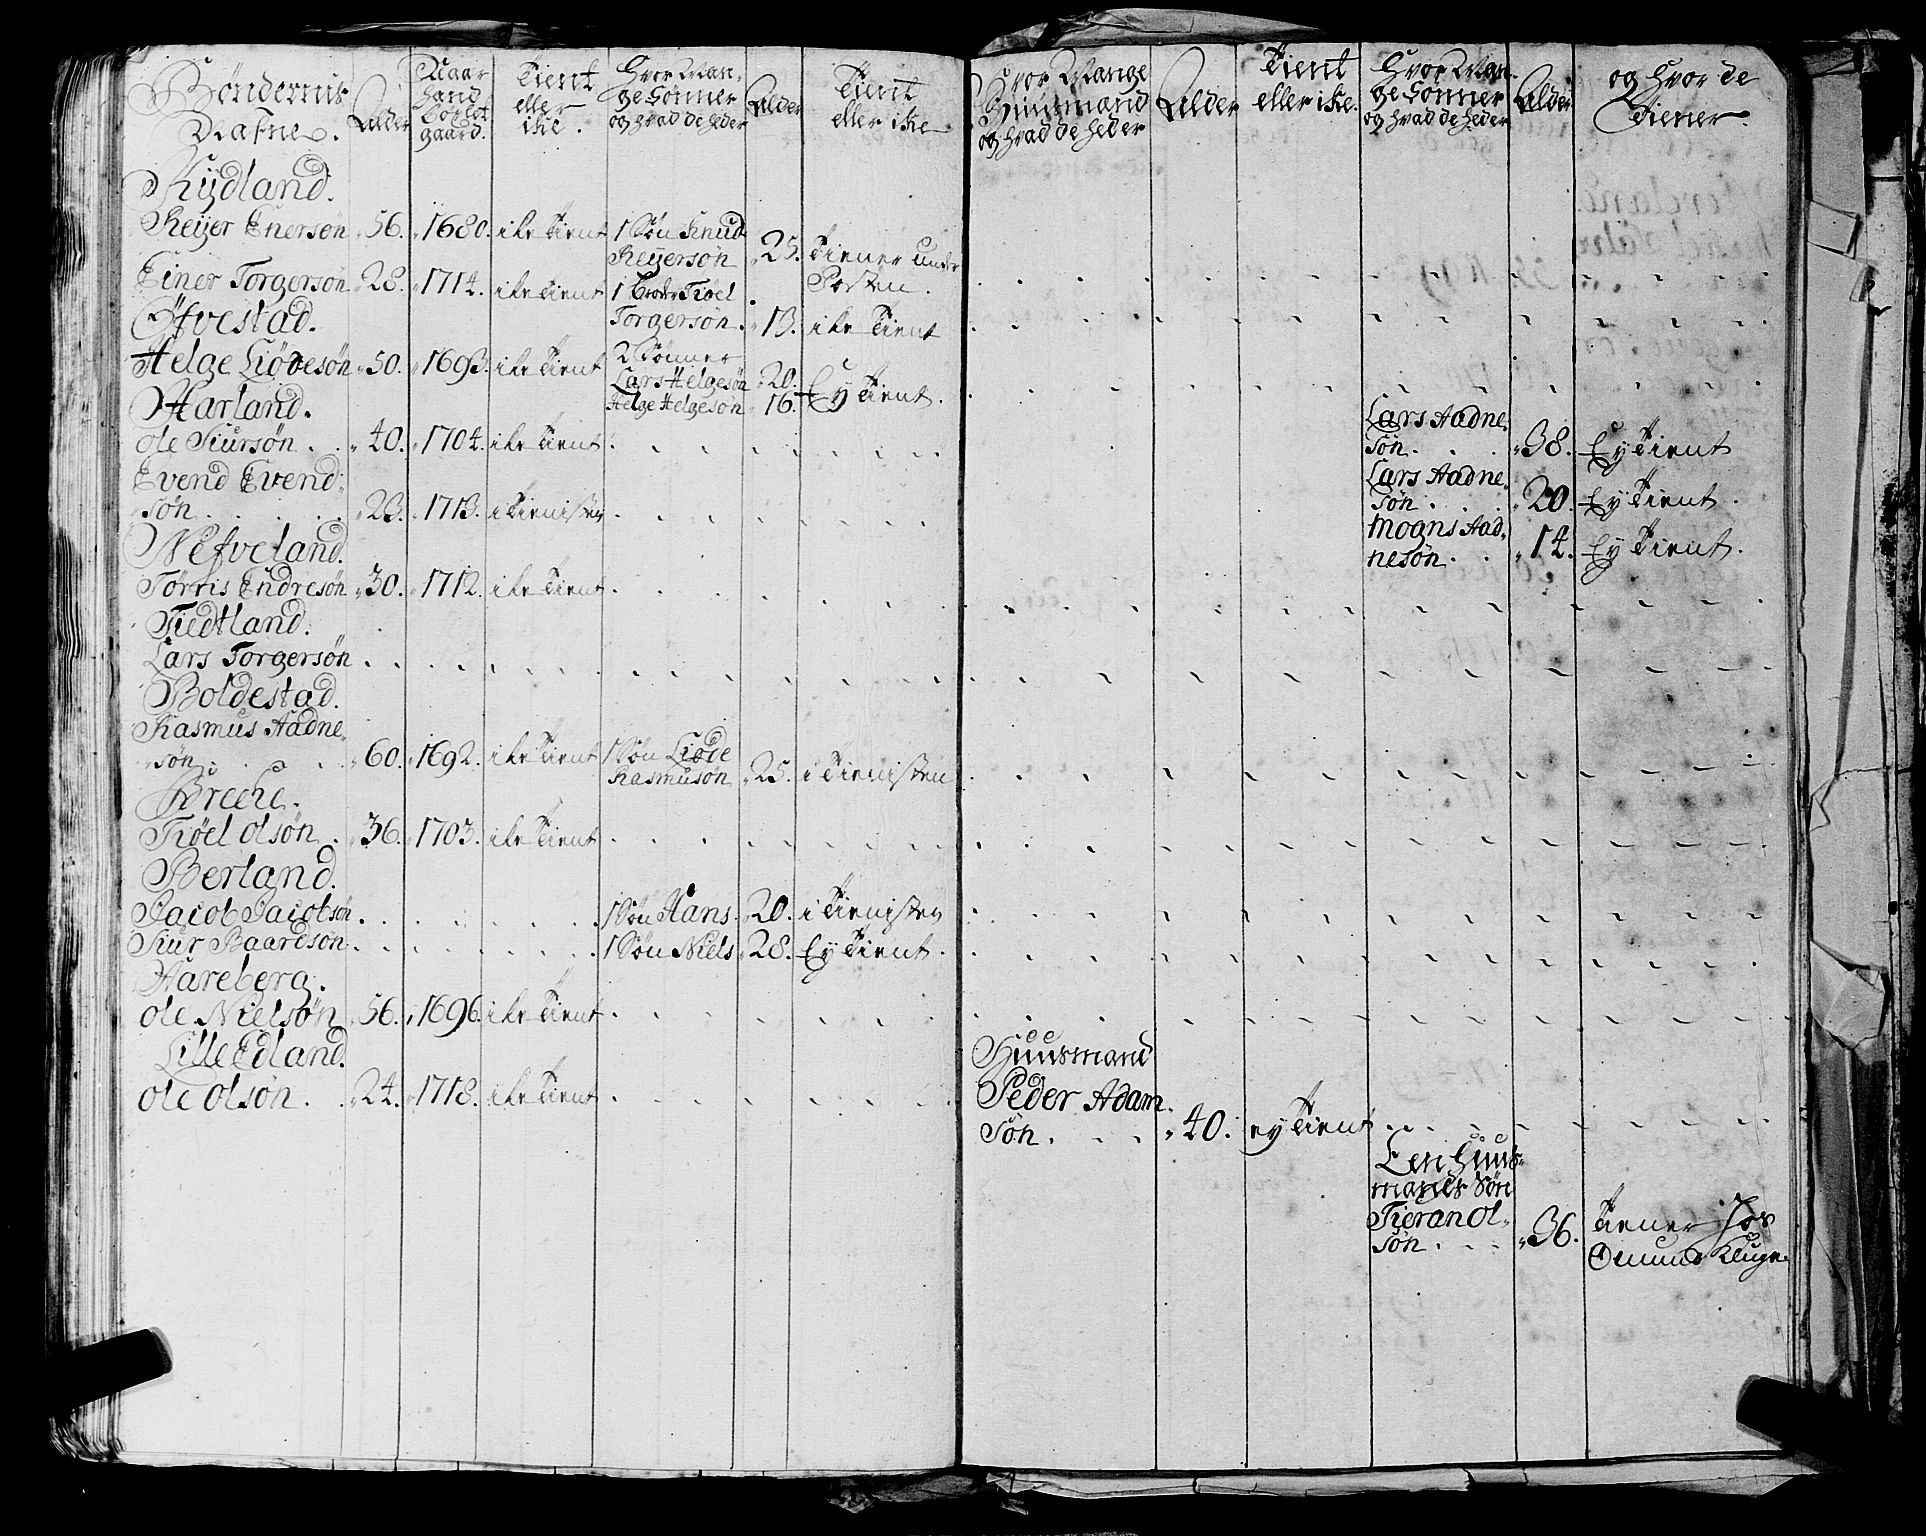 Böndernis Nafne. Alder Naar hand Böxlet gaard. Tient eller ike. Hvor Mange Sönner og hvad de heder Alder Tient eller ike
Hvor Mange Huusmand og hvad de heder Alder Tient eller ike. Hvor Mange Sönner og hvad de heder Alder og hvor de Tiener.
Rydland.
Reijer Enersøn 56. 1680. ike Tient 1 Søn Knud
Reijersøn 25. Tiener under
Posten.
Einer Torgersøn 28. 1714. ike tient 1 Broder Tiøel
Torgersøn. 13. ike Tient
Øfvestad.
Helge Liødesøn 50. 1693. ike Tient 2 Sønner
Lars Helgesøn 20.
Helge Helgesøn 16. Ey Tient.
Harland.
ole Siursøn . . 40. 1704. ike Tient
Lars Aadne-
søn. . . 38. Ey Tient
Evend Evend-
søn. . . . 23. 1713. i Tienisten
Lars Aadne-
søn . . . 20. Ey Tient.
Mogns Aad-
nesøn. . 14. Ey Tient.
Nefveland.
Tørris Endresøn 30. 1712. ike Tient
Tiedtland.
Lars Torgersøn
Boldestad.
Rasmus Aadne-
søn. . . . 60. 1692. ike Tient 1 Søn Liøde
Rasmusøn 25. i Tienisten
Breche.
Tiøel olsøn . 36. 1703. ike Tient
Berland.
Jacob Jacobsøn . . . 1 Søn Hans. 20. i Tienisten
Siur Baardsøn . . . 1 Søn Niels 28. Ey Tient.
Hareberg.
ole Nielsøn 56. 1696. ike Tient
Lille Edland.
ole olsøn. . 24. 1718. ike Tient
Huusmand
Peder Adam-
søn. . . . 40. ey Tient
Een Huus-
mands Søn
Tieran ol-
søn . . . 36. tiener Hos
Omund